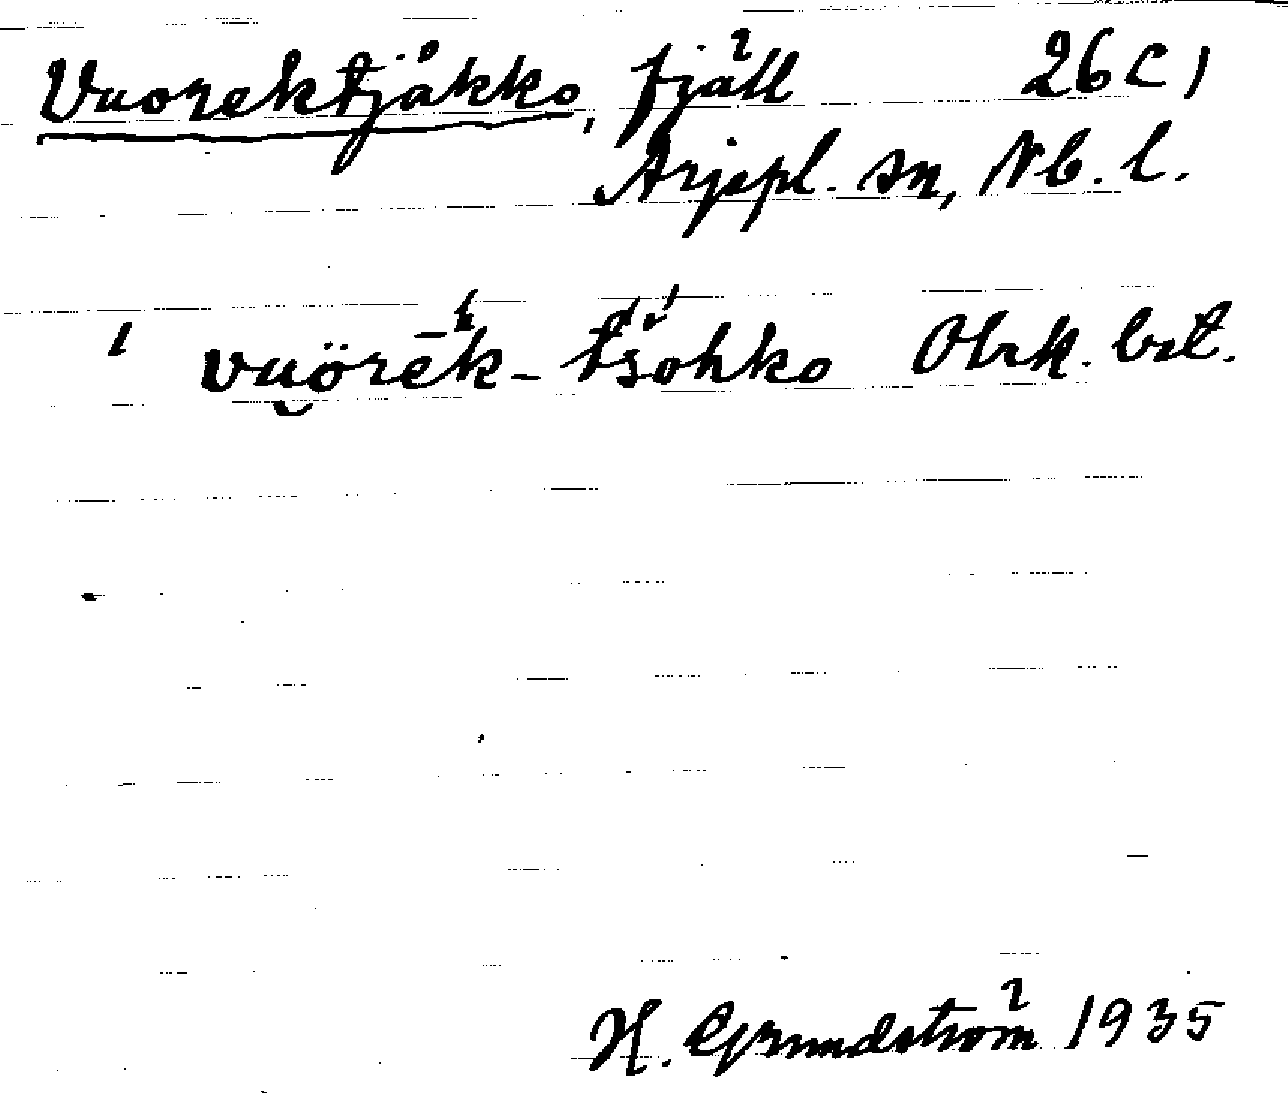 Vuorektjåkko, fjäll 26 C 1
Arjepl. sn, Nb. l.
vuörēk-tšohko
H. Grundström 1935